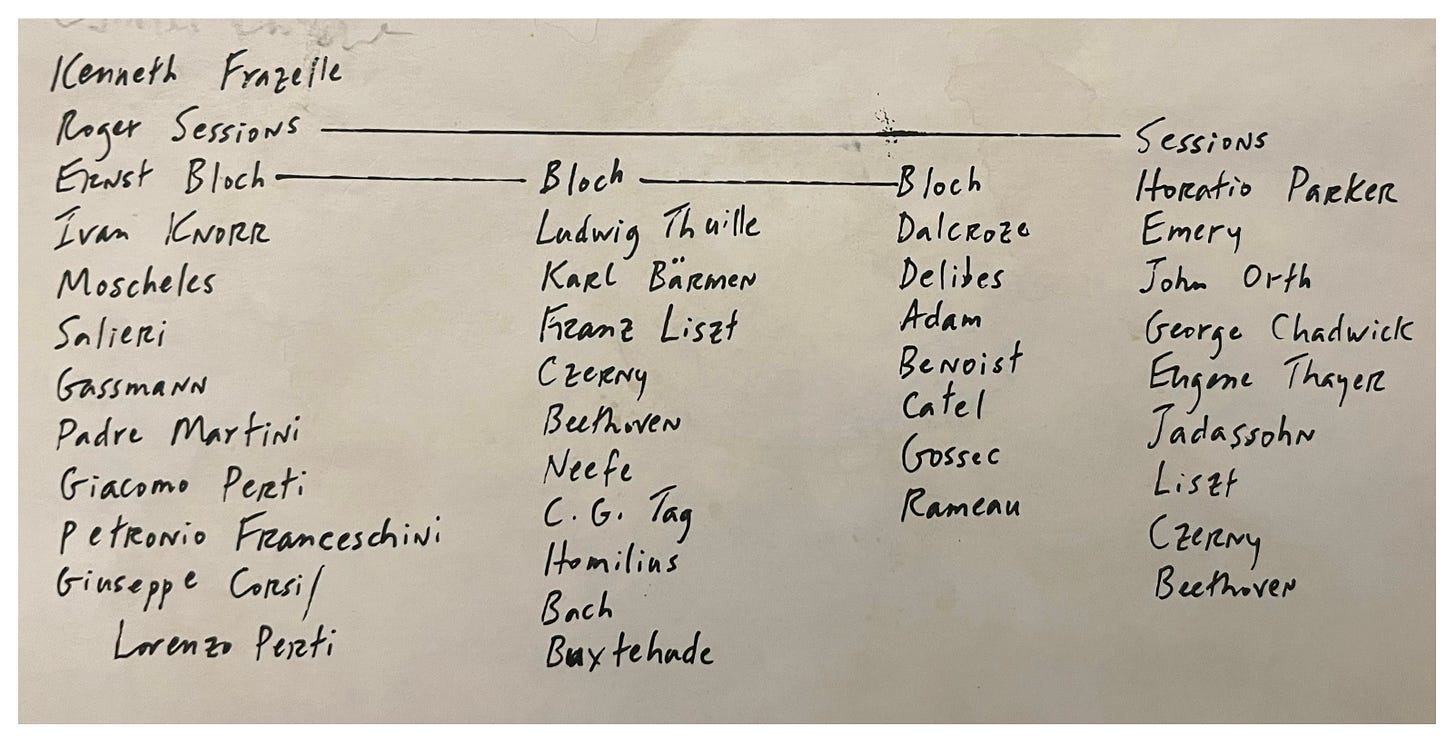 Kenneth Frazelle
Roger Sessions
Ernst Bloch
Ivan Knorr
Moscheles
Salieri
Gassmann
Padre Martini
Giacomo Perti
Petronio Franceschini
Giuseppe Corsi/
Lorenzo Perti
Bloch
Ludwig Thuille
Karl Bärmen
Franz Liszt
Czerny
Beethoven
Neefe
C. G. Tag
Homilius
Bach
Buxtehude
Bloch
Dalcroze
Delibes
Adam
Benoist
Catel
Gossec
Rameau
Sessions
Horatio Parker
Emery
John Orth
George Chadwick
Eugene Thayer
Jadassohn
Liszt
Czerny
Beethoven